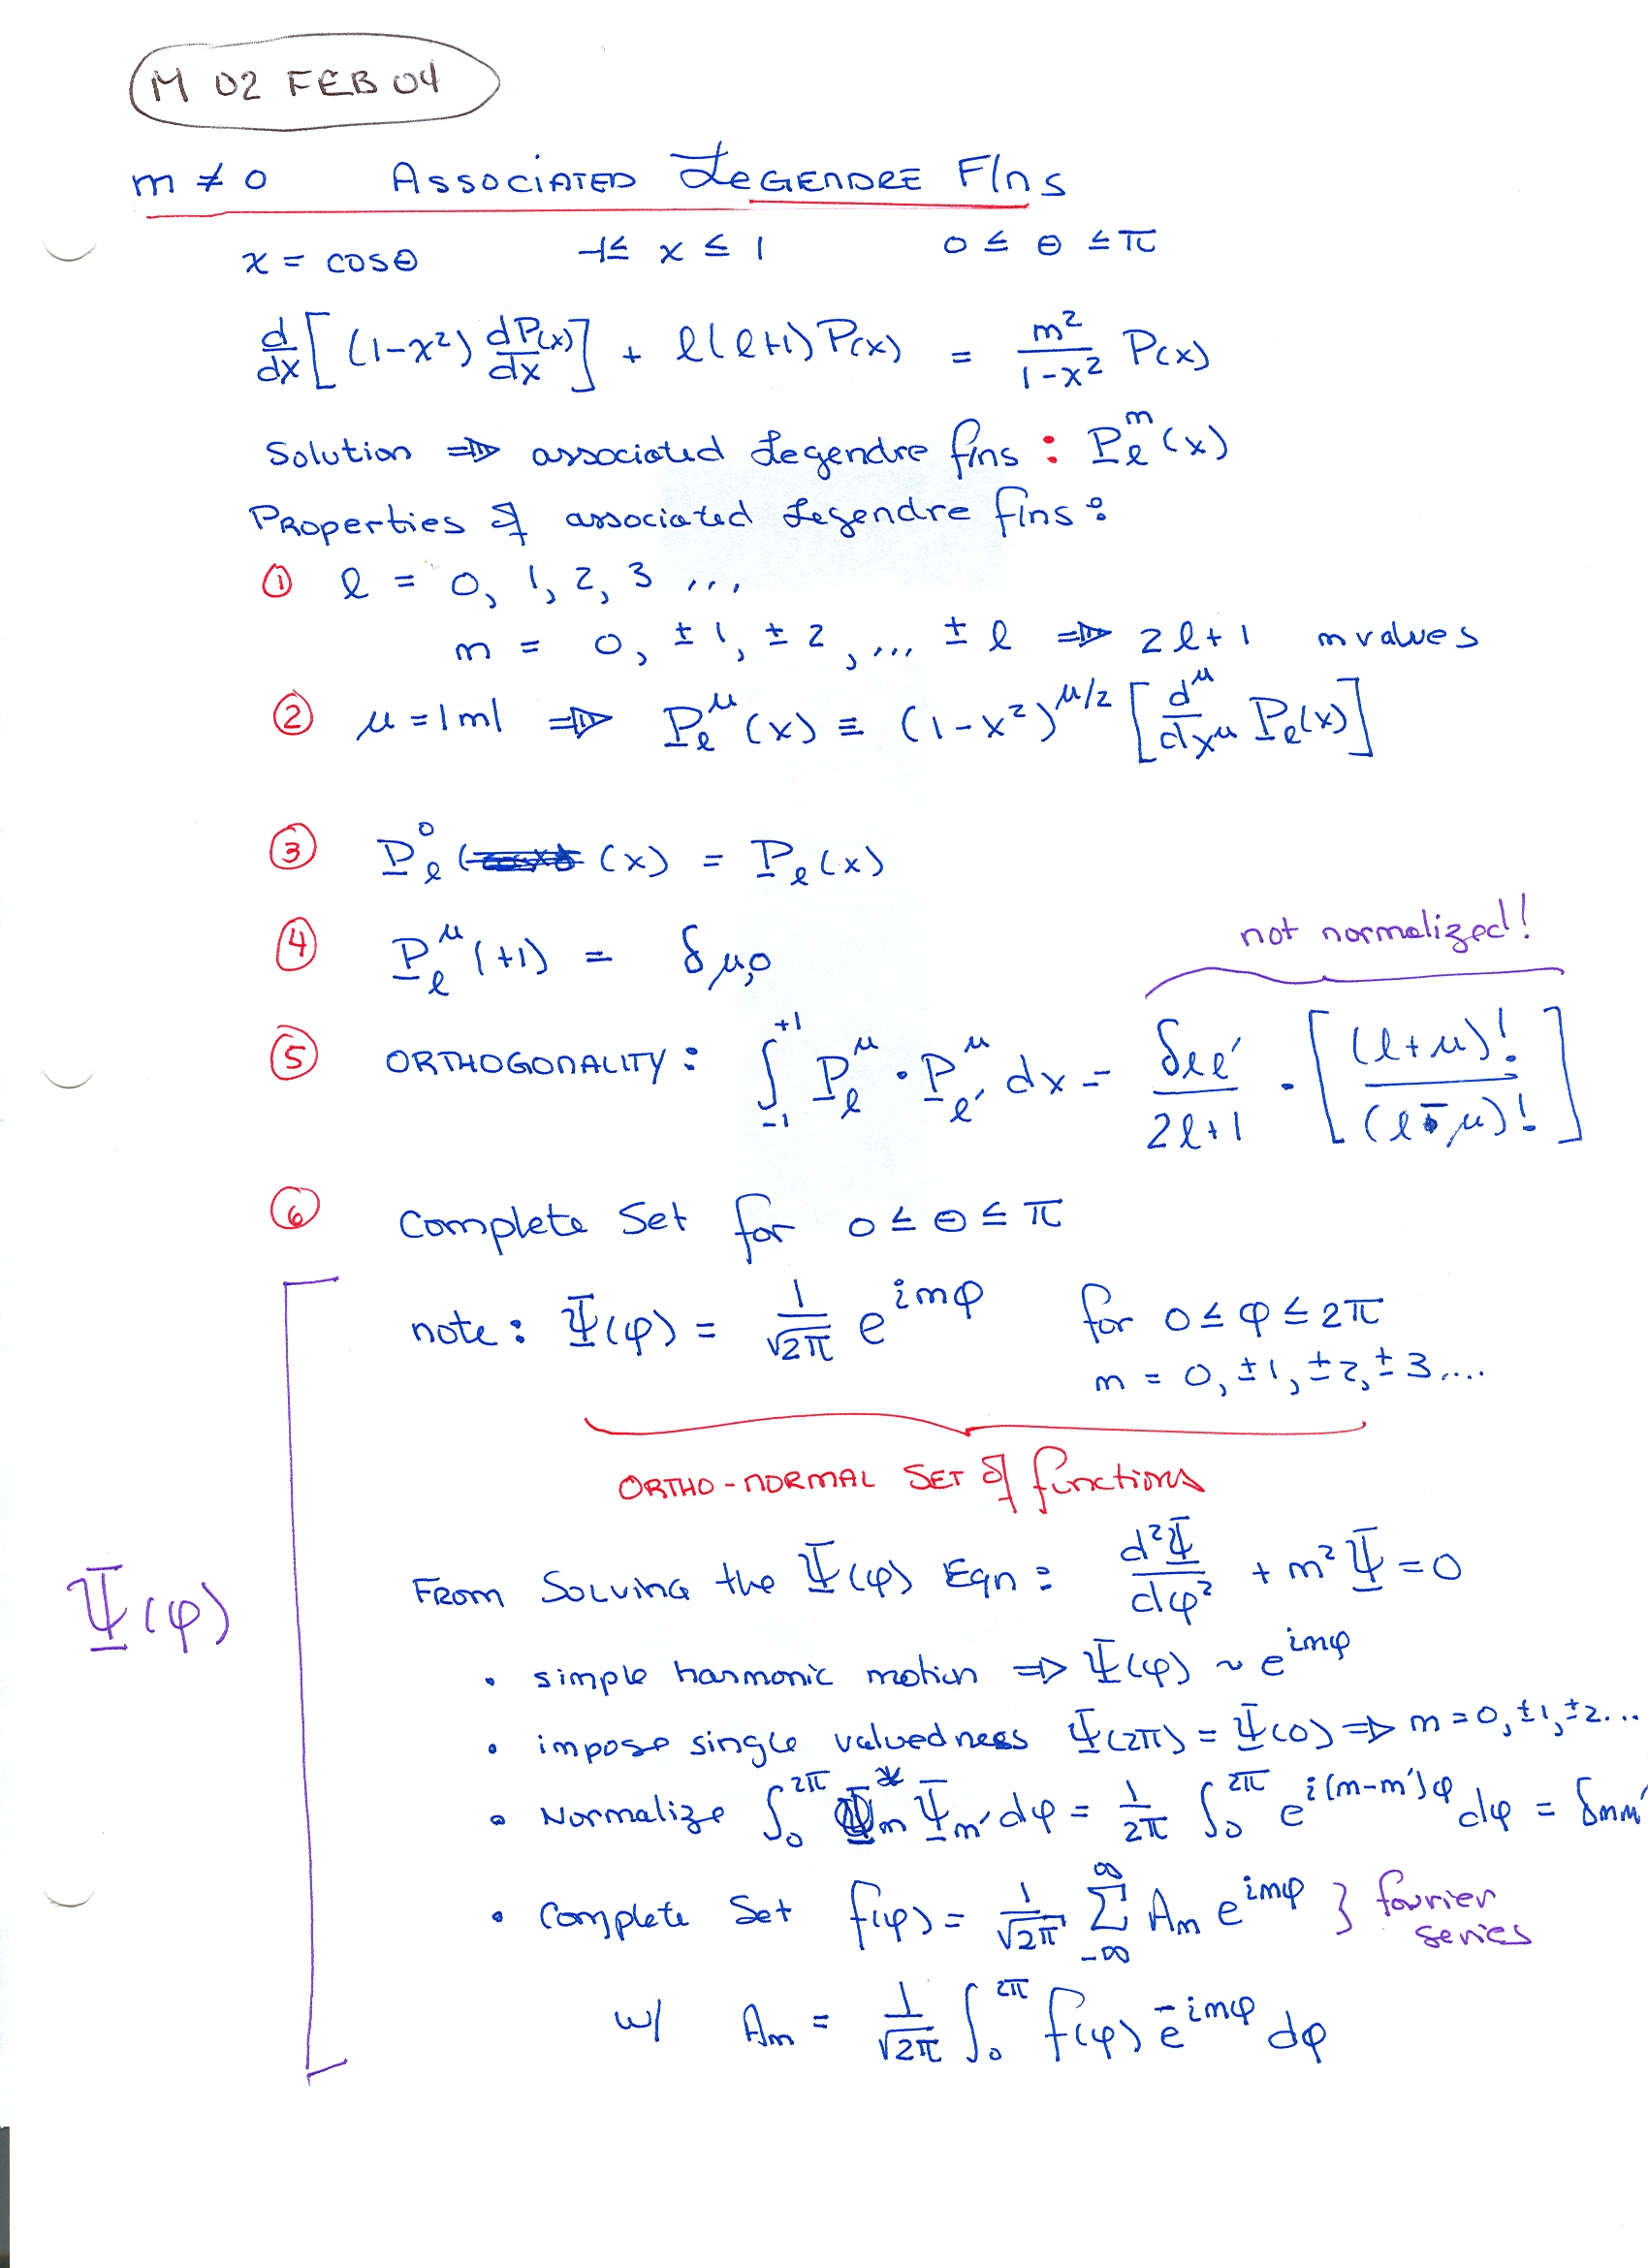 M 02 FEB 04
m ≠ 0 ASSOCIATED LEGENDRE F/ns
x = cosθ -1≤ x ≤ 1 0 ≤ θ ≤ π
d/dx [ (1-x²) dP(x)/dx ] + ℓ(ℓ+1) P(x) = m²/(1-x²) P(x)
Solution ⇒ associated Legendre f/ns : P_ℓ^m (x)
Properties of associated Legendre f/ns :
① ℓ = 0, 1, 2, 3 ...
m = 0, ±1, ±2, ... ±ℓ ⇒ 2ℓ+1 m values
② μ = |m| ⇒ P_ℓ^μ (x) ≡ (1-x²)^{μ/2} [ d^μ/dx^μ P_ℓ(x) ]
③ P_ℓ^0 (x) = P_ℓ(x)
④ P_ℓ^μ (+1) = δ_{μ,0}
not normalized!
⑤ ORTHOGONALITY : ∫_{-1}^{+1} P_ℓ^μ · P_ℓ'^μ dx = δ_{ℓℓ'}/(2ℓ+1) · [ (ℓ+μ)! / (ℓ-μ)! ]
⑥ Complete Set for 0 ≤ θ ≤ π
note : Ψ(φ) = 1/√2π e^{imφ} for 0 ≤ φ ≤ 2π
m = 0, ±1, ±2, ±3 ....
ORTHO-NORMAL SET of functions
Ψ(φ)
FROM SOLVING the Ψ(φ) Eqn : d²Ψ/dφ² + m²Ψ = 0
• simple harmonic motion ⇒ Ψ(φ) ~ e^{imφ}
• impose single valuedness Ψ(2π) = Ψ(0) ⇒ m = 0, ±1, ±2...
• Normalize ∫_0^{2π} Ψ*_m Ψ_m' dφ = 1/2π ∫_0^{2π} e^{i(m-m')φ} dφ = δ_{mm'}
• Complete Set f(φ) = 1/√2π Σ_{-∞}^{∞} A_m e^{imφ} } fourier series
w/ A_m = 1/√2π ∫_0^{2π} f(φ) e^{-imφ} dφ